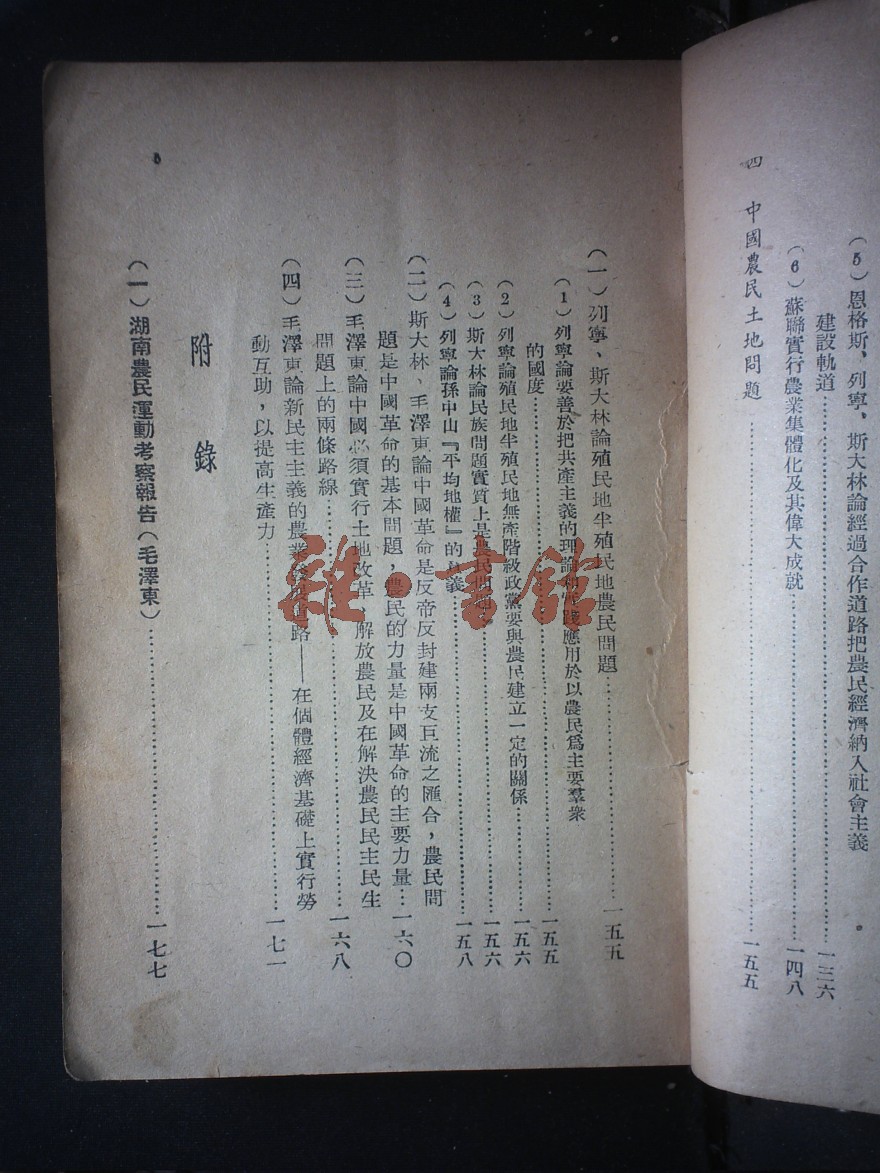 (5)恩格斯、列寧、斯大林論經過合作道路把農民經濟納入社會主義
建設軌道……一三六
(6)蘇聯實行農業集體化及其偉大成就……一四八
四 中國農民土地問題……一五五
(一)列寧、斯大林論殖民地半殖民地農民問題……一五五
(1)列寧論要善於把共產主義的理論和實踐應用於以農民爲主要羣衆
的國度……一五五
(2)列寧論殖民地半殖民地無產階級政黨要與農民建立一定的關係……一五六
(3)斯大林論民族問題實質上是農民問題……一五六
(4)列寧論孫中山『平均地權』的意義……一五八
(二)斯大林、毛澤東論中國革命是反帝反封建兩支巨流之匯合,農民問
題是中國革命的基本問題,農民的力量是中國革命的主要力量……一六〇
(三)毛澤東論中國必須實行土地改革、解放農民及在解決農民民主民生
問題上的兩條路線……一六八
(四)毛澤東論新民主主義的農業發展道路——在個體經濟基礎上實行勞
動互助,以提高生產力……一七一
附錄
(一)湖南農民運動考察報告(毛澤東)……一七七
雜·書館